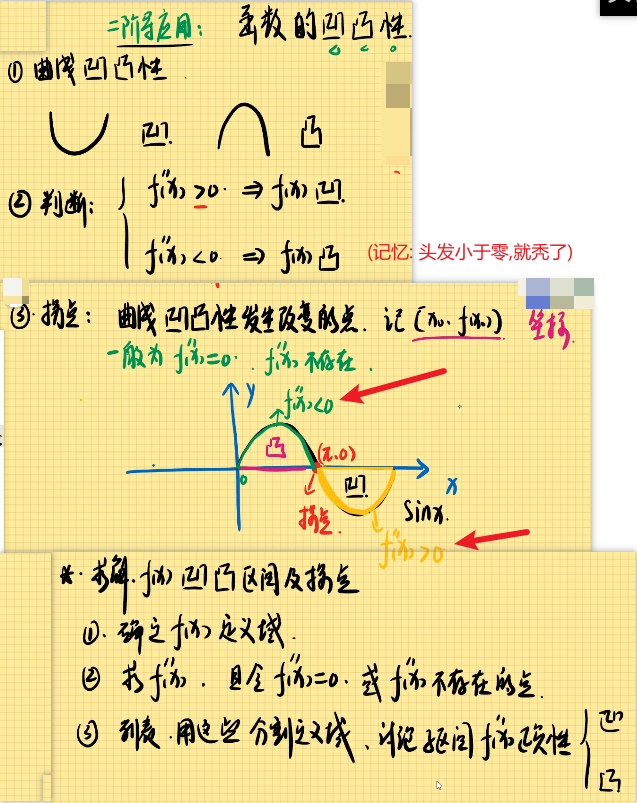 二阶导应用: 函数的凹凸性.
① 曲线凹凸性.
凹. 凸
② 判断: { f''(x)>0. ⇒ f(x) 凹.
f''(x)<0 ⇒ f(x) 凸
(记忆: 头发小于零,就秃了)
③. 拐点: 曲线凹凸性发生改变的点. 记 (x₀, f(x₀)) 坐标.
一般为 f''(x)=0. f''(x) 不存在.
y
f''(x)<0
凸
(π,0)
0
凹.
x
拐点.
sinx.
f''(x)>0
※. 求解. f(x) 凹凸区间及拐点
①. 确定 f(x) 定义域.
② 求 f''(x). 且令 f''(x)=0. 或 f''(x) 不存在的点.
③ 列表. 用这些 分割定义域, 讨论 区间 f''(x) 正负性 { 凹
凸